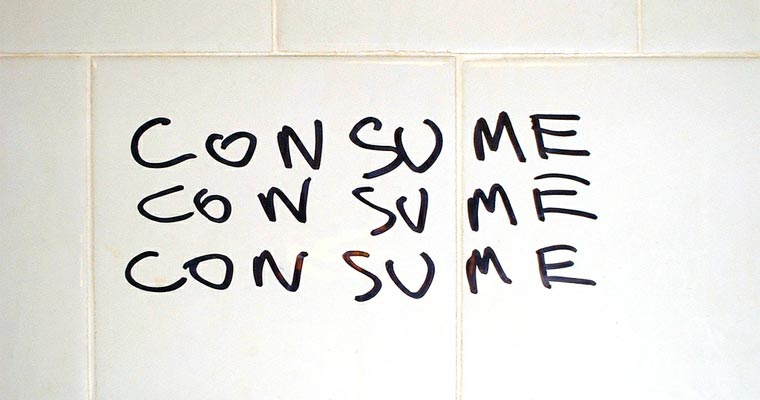 CONSUME
CONSUME
CONSUME